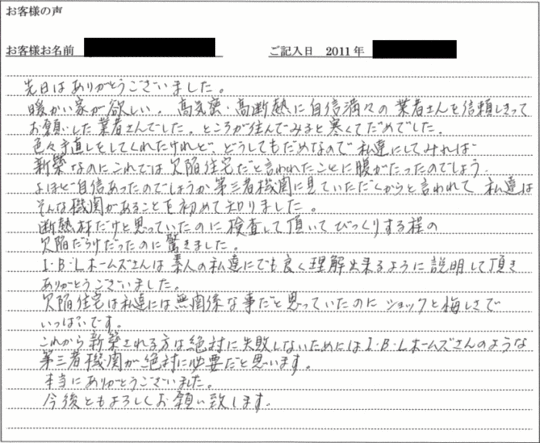 お客様の声
お客様お名前 ご記入日 2011年
先日はありがとうございました。
暖かい家が欲しい。高気密・高断熱に自信満々の業者さんを信頼しきって
お願いした業者さんでした。ところが住んでみると寒くてだめでした。
色々手直しをしてくれたけれど、どうしてもだめなので私達にしてみれば
新築なのにこれでは欠陥住宅だと言われたことに腹がたったのでしょう。
よほど自信あったのでしょうか第三者機関に見ていただくからと言われて、私達は
そんな機関があることを初めて知りました。
断熱材だけと思っていたのに検査して頂いてびっくりする程の
欠陥だらけだったのに驚きました。
I・B・Lホームズさんは素人の私達にでも良く理解出来るように説明して頂き
ありがとうございました。
欠陥住宅は私達には無関係な事だと思っていたのにショックと悔しさで
いっぱいです。
これから新築される方は絶対に失敗しないためにはI・B・Lホームズさんのような
第三者機関が絶対に必要だと思います。
本当にありがとうございました。
今後ともよろしくお願い致します。